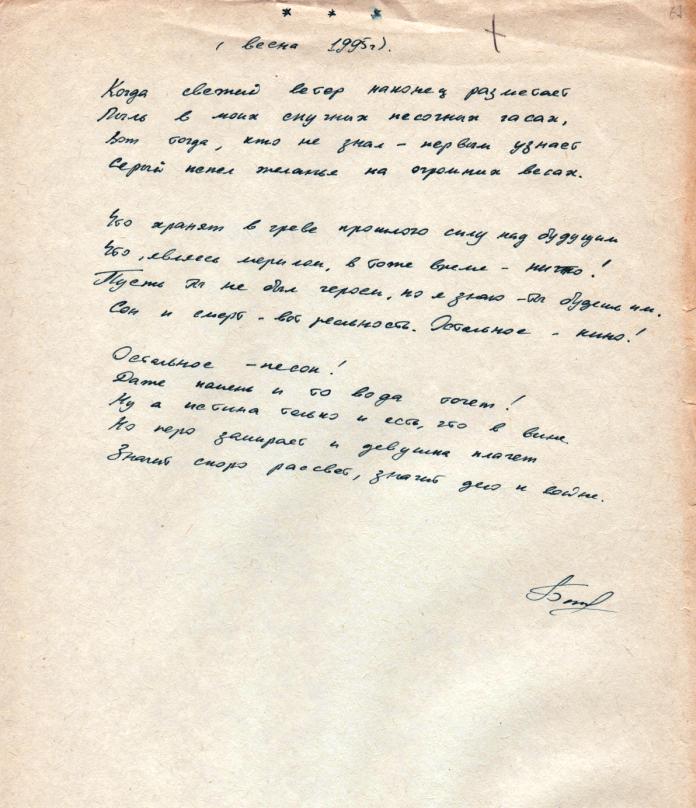 * * *
(весна 1995г).
Когда свежий ветер наконец разметает
Пыль в моих скучных песочных часах,
Вот тогда, кто не знал - первым узнает
Серый пепел желанья на огромных весах.
Что хранят в чреве прошлого силу над будущим
Что, являясь мерилом, в тоже время - ничто!
Пусть ты не был героем, но я знаю - ты будешь им.
Сон и смерт - вот реальность. Остальное - кино!
Остальное - песок!
Даже камень и то вода точет!
Ну а истина только и есть, что в вине
Но перо замирает и девушка плачет
Значит скоро рассвет, значит дело к войне.